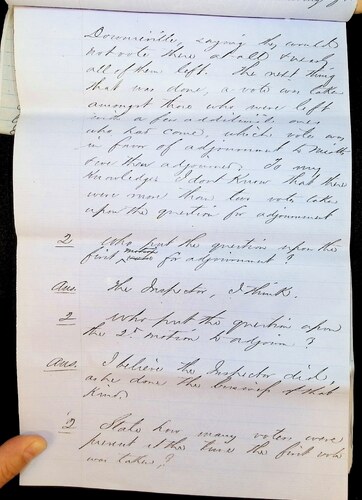 Downieville, saying they would
not vote there at all & nearly
all of them left. The next thing
that was done, a vote was take
amongst those who were left
with a few additional ones
who had come, which vote was
in favor of adjournment to
& we then adjourned. To my
knowledge I dont know that there
were more than two vote take
upon the question for adjournment
Q Who put the question upon the
first motion for adjournment?
Ans. The Inspector, I think.
Q Who put the question upon
the 2d motion to adjourn?
Ans. I believe the Inspector did,
as he done the business of that
kind.
Q State how many voters were
present at the time the first vote
was taken?